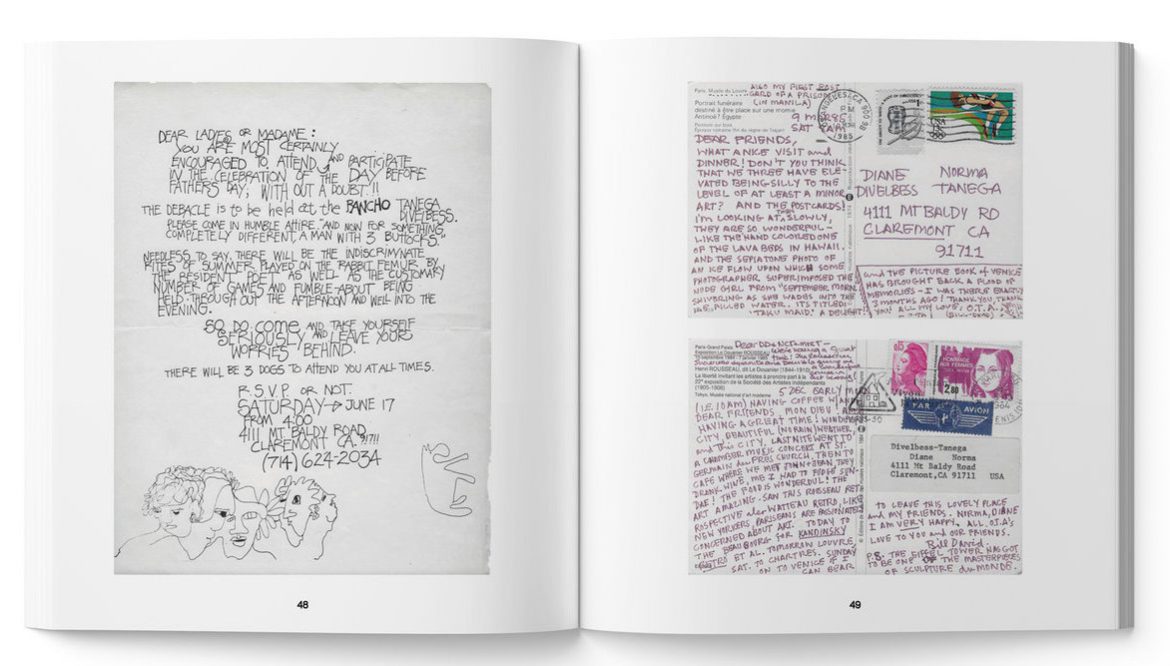 DEAR LADIES OR MADAME:
YOU ARE MOST CERTAINLY
ENCOURAGED TO ATTEND, AND PARTICIPATE
IN THE CELEBRATION OF THE DAY BEFORE
FATHERS DAY, WITH OUT A DOUBT!!
THE DEBACLE IS to be held at the RANCHO TANEGA
DIVELBESS.
PLEASE COME IN HUMBLE ATTIRE. AND NOW FOR SOMETHING,
COMPLETELY DIFFERENT, A MAN WITH 3 BUTTOCKS.
NEEDLESS TO SAY, THERE WILL BE THE INDISCRIMINATE
RITES OF SUMMER PLAYED ON THE RABBIT FEMUR BY
THE RESIDENT POET AS WELL AS THE CUSTOMARY
NUMBER OF GAMES AND FUMBLE-ABOUT BEING
HELD THROUGH OUT THE AFTERNOON AND WELL INTO THE
EVENING.
SO DO COME AND TAKE YOURSELF
SERIOUSLY AND LEAVE YOUR
WORRIES BEHIND.
THERE WILL BE 3 DOGS TO ATTEND YOU AT ALL TIMES.
R.S.V.P. OR NOT.
SATURDAY → JUNE 17
FROM 4:00
4111 MT BALDY ROAD
CLAREMONT CA. 91711
(714) 624-2034
48
ALSO MY FIRST POST
CARD OF A PRISON
(IN MANILA)
Paris, Musée du Louvre
Portrait funéraire
destiné à être placé sur une momie
Antinoë? Égypte
9 MAR 85
SAT 9AM
DEAR FRIENDS,
WHAT A NICE VISIT and
DINNER! DON'T YOU THINK
THAT WE THREE HAVE ELE-
VATED BEING SILLY TO THE
LEVEL OF AT LEAST A MINOR
ART? AND THE POSTCARDS!
I'M LOOKING AT THEM SLOWLY,
THEY ARE SO WONDERFUL —
LIKE THE HAND COLORED ONE
OF THE LAVA BEDS IN HAWAII.
AND THE SEPIATONE PHOTO OF
AN ICE FLOW UPON WHICH SOME
PHOTOGRAPHER SUPERIMPOSED THE
NUDE GIRL FROM "SEPTEMBER MORN
SHIVERING AS SHE WADES INTO THE
ICE FILLED WATER. ITS TITLED:
"TAKU MAID". A DELIGHT!
1985
DIANE NORMA
DIVELBESS TANEGA
4111 MT BALDY RD
CLAREMONT CA
91711
and THE PICTURE BOOK of VENICE
HAS BROUGHT BACK A FLOOD OF
MEMORIES - I WAS THERE EXACTLY
3 MONTHS AGO! THANK YOU, THANK
YOU, ALL MY LOVE. O.T.A.
Paris-Grand Palais
Exposition Le Douanier ROUSSEAU
Henri ROUSSEAU, dit Le Douanier (1844-1910)
La liberté invitant les artistes à prendre part à la
22e exposition de la Société des Artistes Indépendants
(1905-1906)
Tokyo, Musée national d'art moderne
5 DEC EARLY
(I.E. 10AM) HAVING COFFEE
DEAR FRIENDS, MON DIEU
HAVING A GREAT TIME!
CITY, BEAUTIFUL (NO RAIN) WEATHER,
and THIS CITY. LAST NITE WENT TO
A CHAMBER MUSIC CONCERT AT ST.
GERMAIN du PRES CHURCH, THEN TO
CAFE WHERE WE MET JOHN + JEAN, THEY
DRANK WINE, ME I HAD TO FUDGE SUN-
DAE! THE FOOD IS WONDERFUL! THE
ART AMAZING. SAW THIS ROUSSEAU RET-
ROSPECTIVE also WATTEAU RETRO, LIKE
NEW YORKERS, PARISIANS ARE PASSIONATELY
CONCERNED ABOUT ART. TODAY TO
THE BEAUBOURG FOR KANDINSKY
RETRO ET AL. TOMORROW LOUVRE
SAT. TO CHARTRES. SUNDAY
ON TO VENICE IF I
CAN BEAR
HOMMAGE
AUX FEMMES
2.80
PAR AVION
Divelbess-Tanega
Diane Norma
4111 Mt Baldy Road
Claremont,CA 91711 USA
TO LEAVE THIS LOVELY PLACE
and MY FRIENDS. NORMA, DIANE
I AM VERY HAPPY. ALL O.T.A's
LOVE TO YOU and OUR FRIENDS.
Bill David
P.S. THE EIFFEL TOWER HAS GOT
TO BE ONE OF THE MASTERPIECES
OF SCULPTURE du MONDE.
49